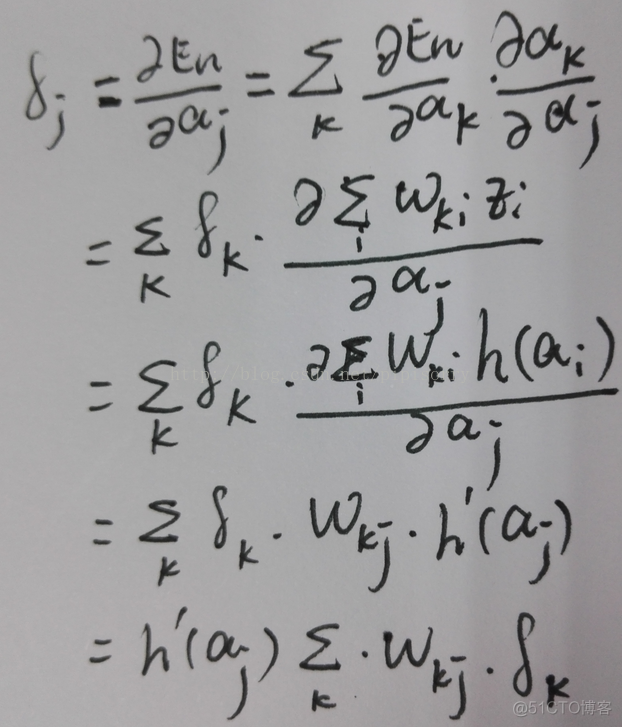 δj = ∂En/∂aj = Σk ∂En/∂ak · ∂ak/∂aj
= Σk δk · ∂Σi wki zi / ∂aj
= Σk δk · ∂Σi wki h(ai) / ∂aj
= Σk δk · wkj · h′(aj)
= h′(aj) Σk · wkj · δk
@51CTO博客